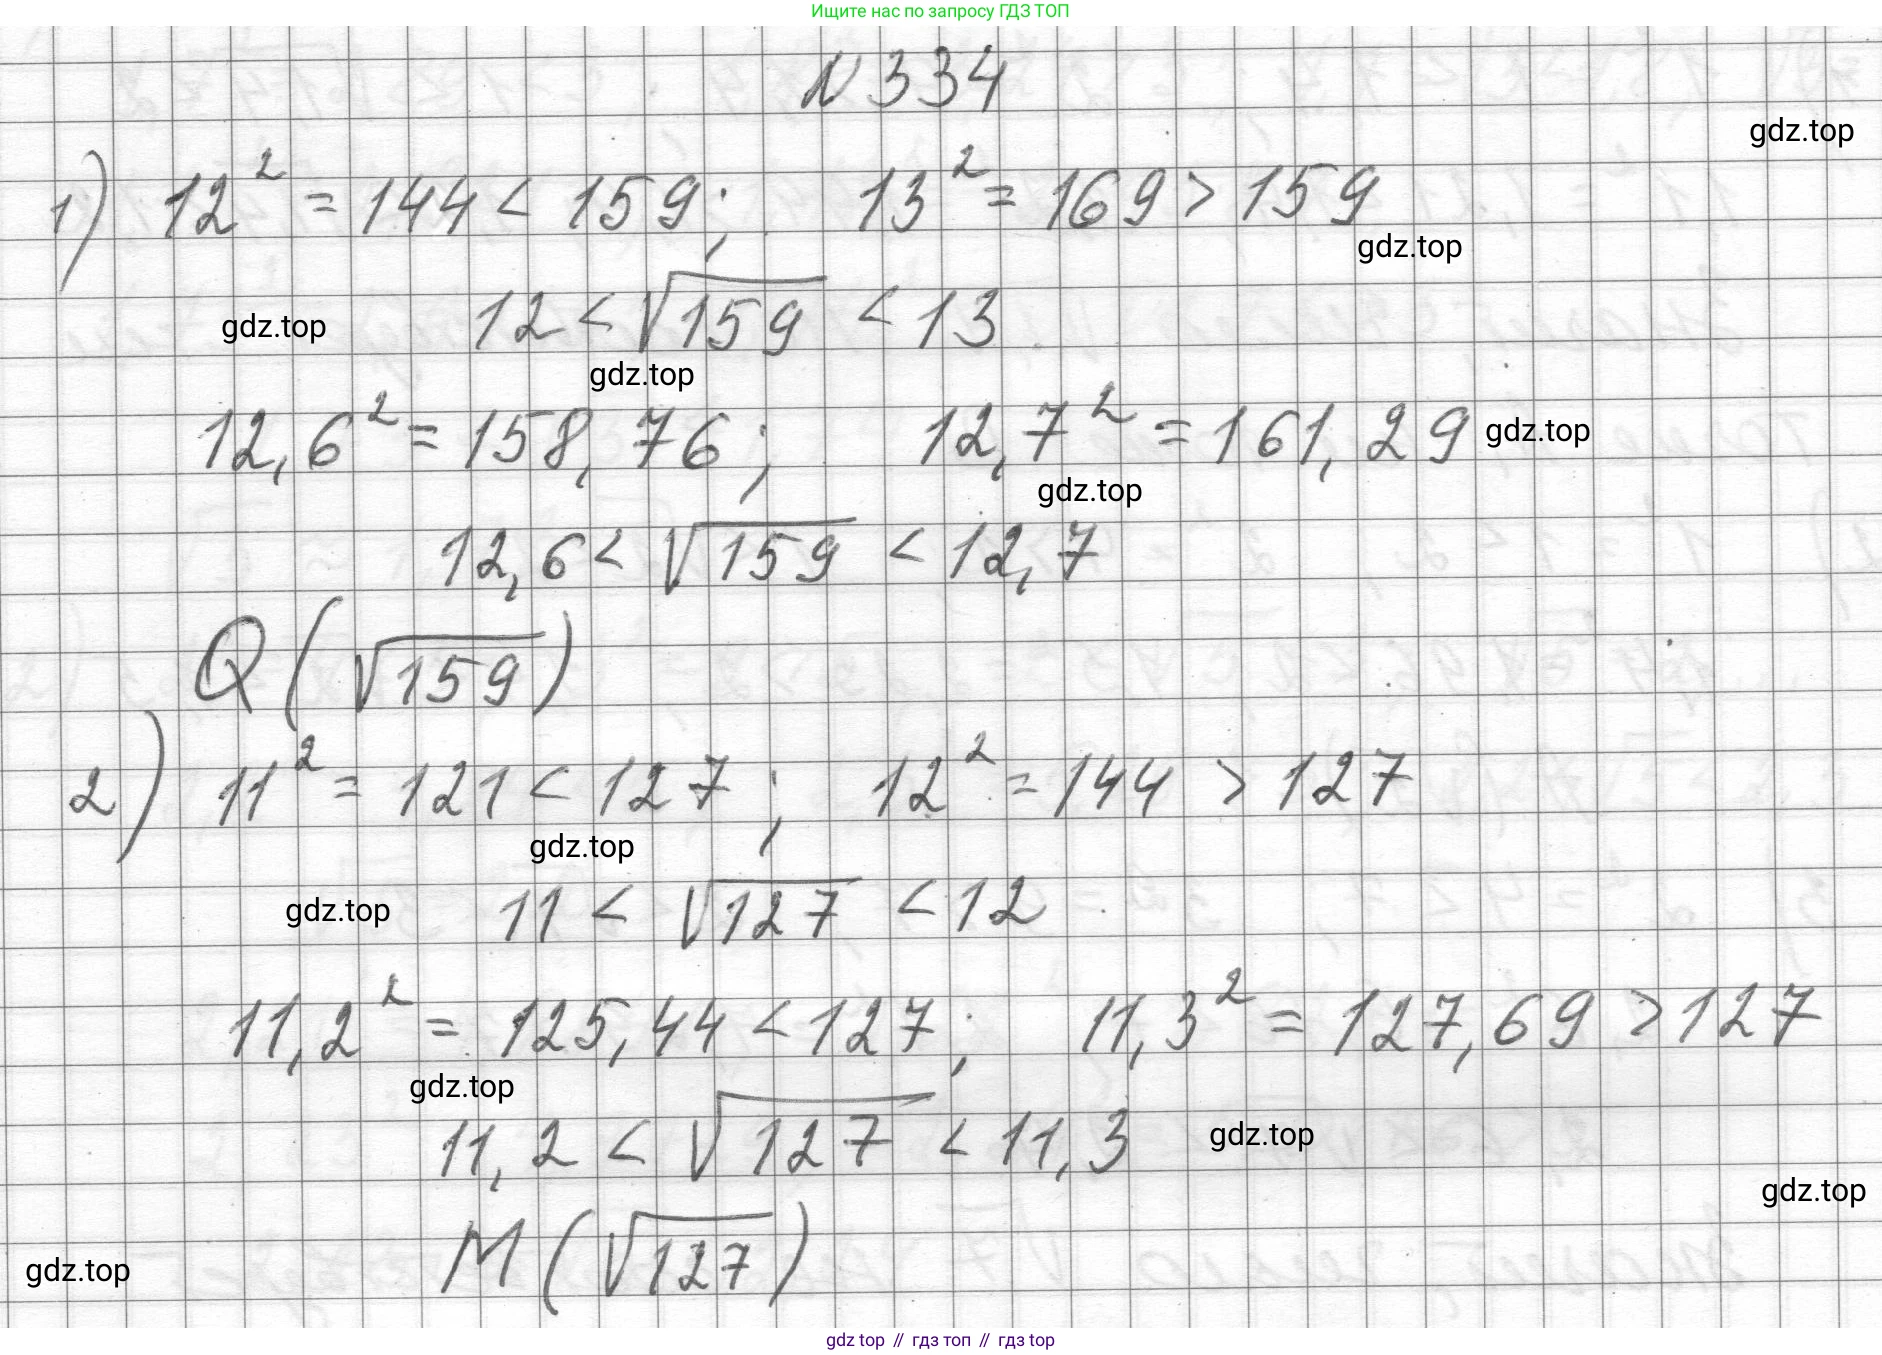 Ищите нас по запросу ГДЗ ТОП
N 334
gdz.top
1) 12² = 144 < 159; 13² = 169 > 159
gdz.top
12 < √159 < 13
gdz.top
gdz.top
12,6² = 158,76; 12,7² = 161,29
gdz.top
gdz.top
12,6 < √159 < 12,7
Q(√159)
2) 11² = 121 < 127; 12² = 144 > 127
gdz.top
11 < √127 < 12
gdz.top
11,2² = 125,44 < 127; 11,3² = 127,69 > 127
gdz.top
11,2 < √127 < 11,3
gdz.top
gdz.top
M(√127)
gdz.top
gdz top // гдз топ // gdz top